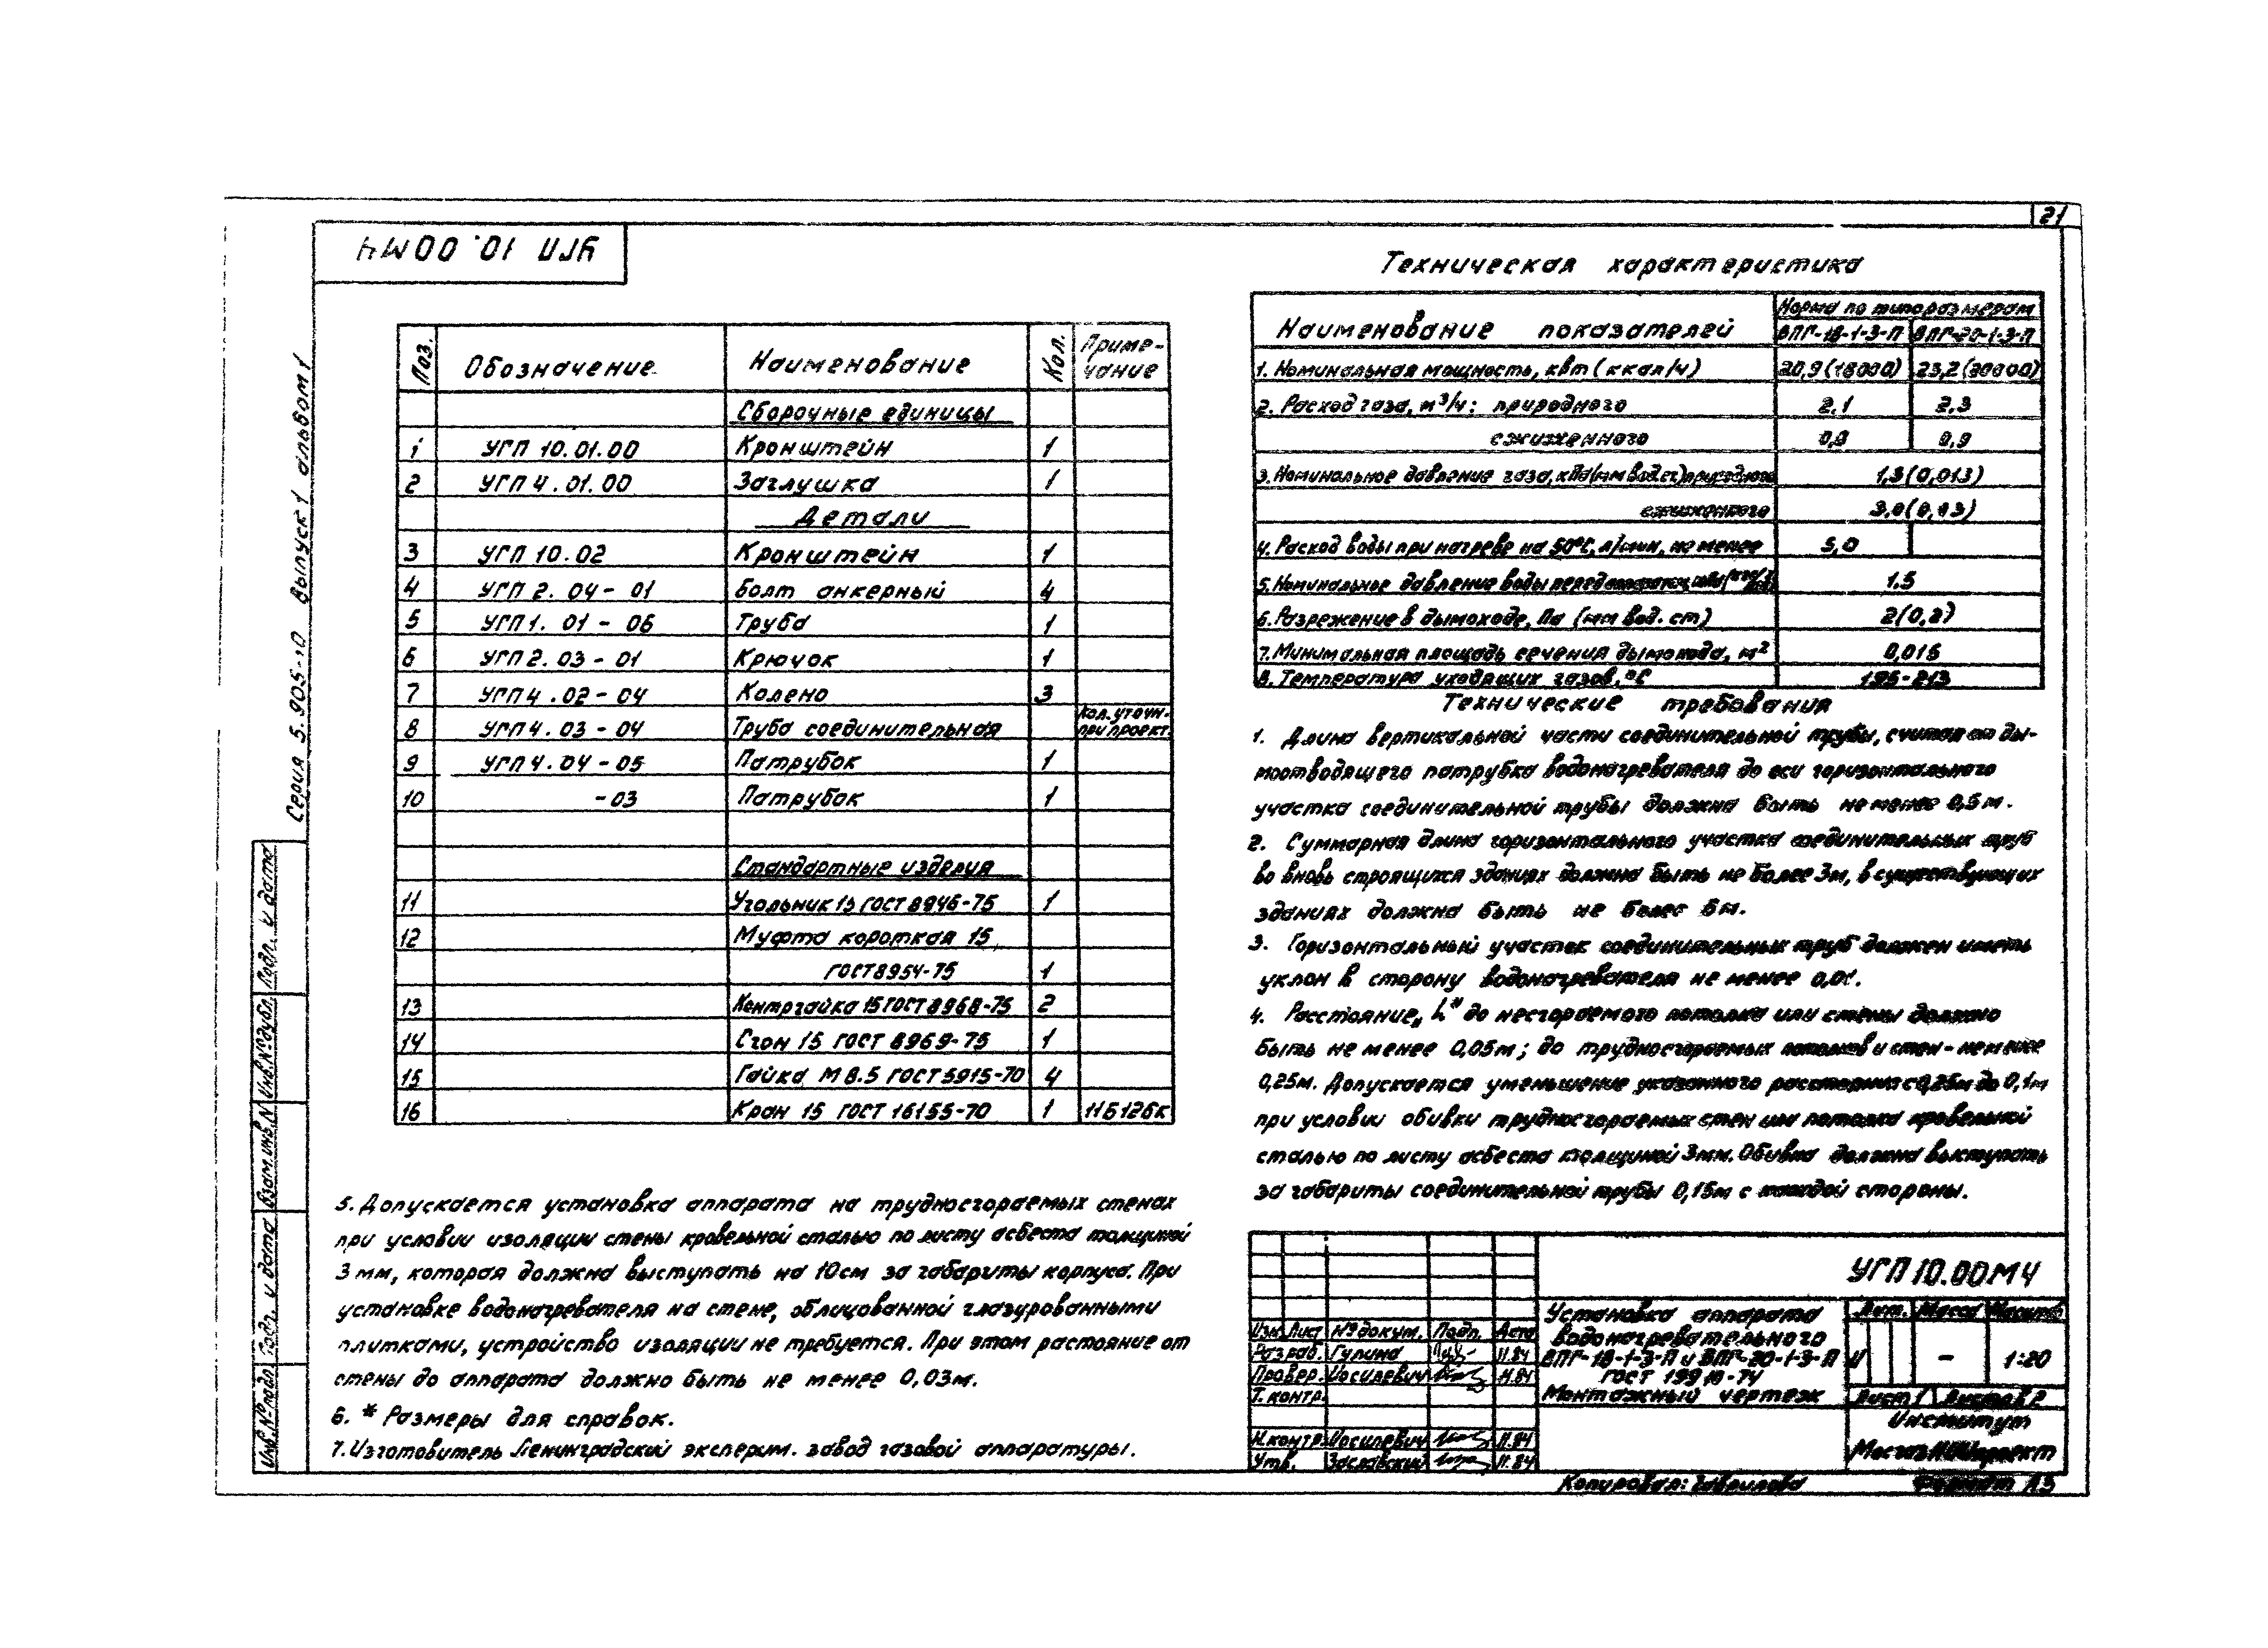 21
УГП 10.00МЧ
Серия 5.905-10 выпуск 1 альбом 1
Поз. Обозначение Наименование Кол. Приме-
чание
Сборочные единицы
1 УГП 10.01.00 Кронштейн 1
2 УГП 4.01.00 Заглушка 1
Детали
3 УГП 10.02 Кронштейн 1
4 УГП 2.04-01 Болт анкерный 4
5 УГП 1.01-06 Труба 1
6 УГП 2.03-01 Крючок 1
7 УГП 4.02-04 Колено 3
8 УГП 4.03-04 Труба соединительная кол. уточн.
при проект.
9 УГП 4.04-05 Патрубок 1
10 -03 Патрубок 1
Стандартные изделия
11 Угольник 15 ГОСТ 8946-75 1
12 Муфта короткая 15
ГОСТ 8954-75 1
13 Контргайка 15 ГОСТ 8968-75 2
14 Сгон 15 ГОСТ 8969-75 1
15 Гайка М8.5 ГОСТ 5915-70 4
16 Кран 15 ГОСТ 16155-70 1 11Б12бк
5. Допускается установка аппарата на трудносгораемых стенах
при условии изоляции стены кровельной сталью по листу асбеста толщиной
3 мм, которая должна выступать на 10 см за габариты корпуса. При
установке водонагревателя на стене, облицованной глазурованными
плитками, устройство изоляции не требуется. При этом растояние от
стены до аппарата должно быть не менее 0,03м.
6. * Размеры для справок.
7. Изготовитель Ленинградский эксперим. завод газовой аппаратуры.
Техническая характеристика
Наименование показателей Норма по типоразмерам
ВПГ-18-1-3-П ВПГ-20-1-3-П
1. Номинальная мощность, квт (ккал/ч) 20,9 (18000) 23,2 (20000)
2. Расход газа, м³/ч: природного 2,1 2,3
сжиженного 0,9
3. Номинальное давление газа, кПа (мм вод.ст) природного 1,3 (0,013)
сжиженного 3,0 (0,03)
4. Расход воды при нагреве на 50°С, л/мин, не менее 5,0
5. Номинальное давление воды перед 1.5
6. Разрежение в дымоходе, Па (мм вод. ст) 2 (0,2)
7. Минимальная площадь сечения дымохода, м²
8. Температура уходящих газов, °С
Технические требования
1. Длина вертикальной части соединительной трубы, считая от ды-
моотводящего патрубка водонагревателя до оси горизонтального
участка соединительной трубы должна быть не менее 0,5 м.
2. Суммарная длина горизонтального участка соединительных труб
во вновь строящихся зданиях должна быть не более 3м, в существующих
зданиях должна быть не более 6м.
3. Горизонтальный участок соединительных труб должен иметь
уклон в сторону водонагревателя не менее 0,01.
4. Расстояние „L" до несгораемого потолка или стены должно
быть не менее 0,05м; до трудносгораемых потолков и стен - не менее
0,25м. Допускается уменьшение указанного расстояния с 0,25м до 0,1м
при условии обивки трудносгораемых стен или потолка кровельной
сталью по листу асбеста толщиной 3мм. Обивка должна выступать
за габариты соединительной трубы 0,15м с каждой стороны.
УГП 10.00.МЧ
Установка аппарата
водонагревательного
ВПГ-18-1-3-П и ВПГ-20-1-3-П
ГОСТ 19910-74
Монтажный чертеж
Лит. Масса Масштаб
И - 1:20
Лист 1 Листов 2
Институт
МосгазНИИпроект
Изм. Лист № докум. Подп. Дата
Разраб. Гулина 11.84
Провер. Иосилевич 11.84
Т. контр.
Н. контр. Иосилевич 11.84
Утв. Заславский 11.84
Копировал: Гаврилова Формат А3
Инв. № подл. Подп. и дата Взам. инв. № Инв. № дубл. Подп. и дата